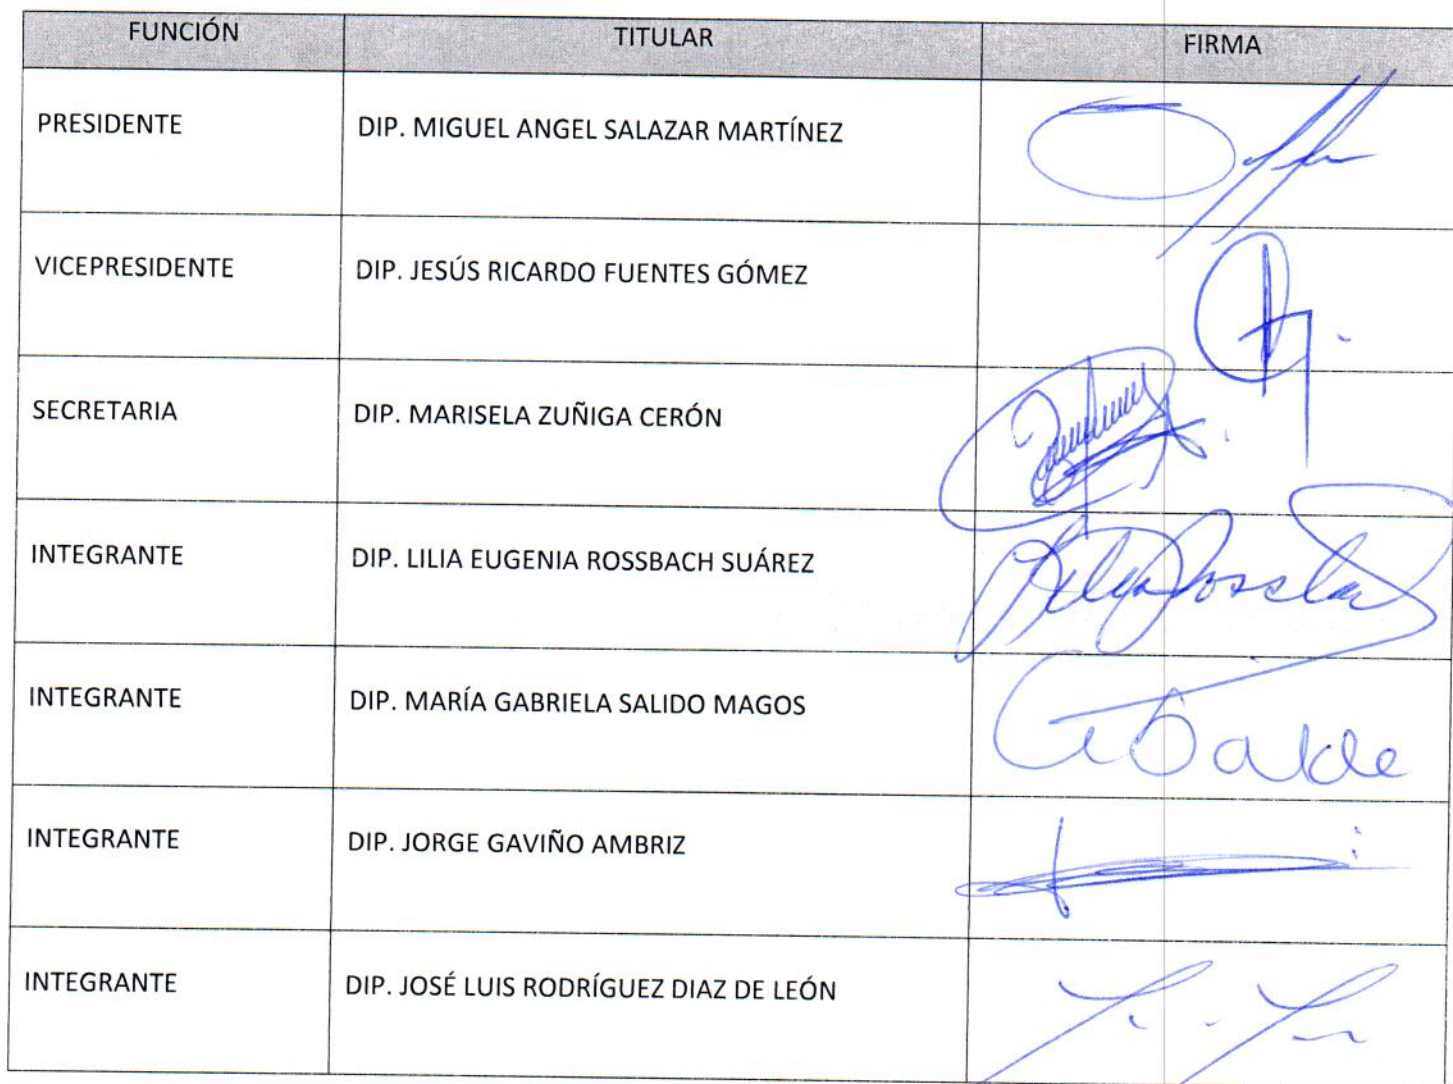 FUNCIÓN TITULAR FIRMA
PRESIDENTE DIP. MIGUEL ANGEL SALAZAR MARTÍNEZ
VICEPRESIDENTE DIP. JESÚS RICARDO FUENTES GÓMEZ
SECRETARIA DIP. MARISELA ZUÑIGA CERÓN
INTEGRANTE DIP. LILIA EUGENIA ROSSBACH SUÁREZ
INTEGRANTE DIP. MARÍA GABRIELA SALIDO MAGOS
INTEGRANTE DIP. JORGE GAVIÑO AMBRIZ
INTEGRANTE DIP. JOSÉ LUIS RODRÍGUEZ DIAZ DE LEÓN